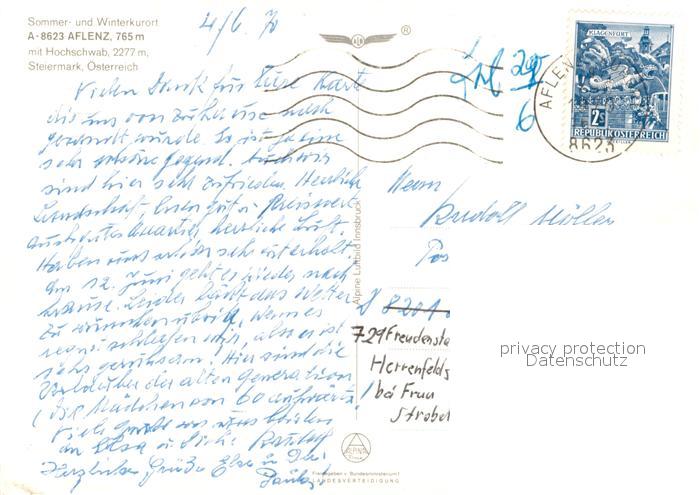 Sommer- und Winterkurort
A-8623 AFLENZ, 765 m
mit Hochschwab, 2277 m,
Steiermark, Österreich
4/6. 70
®
KLAGENFURT
2 S
REPUBLIK ÖSTERREICH
AFLENZ
8623
6
Vielen Dank für Eure Karte
die uns von zu Hause nach
gesandt wurde. Es ist ja eine
sehr schöne Gegend. Auch wir
sind hier sehr zufrieden. Herrliche
Landschaft, Essen gut u. preiswert
auch gutes Quartier, herrliche Luft.
Haben uns schon sehr gut erholt.
Am 12. Juni geht es wieder nach
Hause. Leider läßt das Wetter
zu wünschen übrig, wenn es
, aber es ist
sehr geruhsam. Hier sind die
Urlauber der alten Generation
(der Mädchen von 60 aufwärts)
Viele Grüße von uns beiden
an Elsa u. Rudolf
Herzliche Grüße Else u.
Alpine Luftbild Innsbruck
Herrn
Rudolf Möller
Pos
8201
729 Freudensta
Herrenfelds
bei Frau
Strobel
privacy protection
Datenschutz
ALPINE
Freigegeben v. Bundesministerium f.
LANDESVERTEIDIGUNG